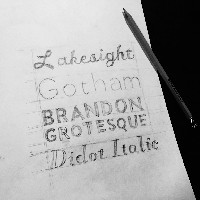 Lakesight
Gotham
BRANDON
GROTESQUE
Didot Italic